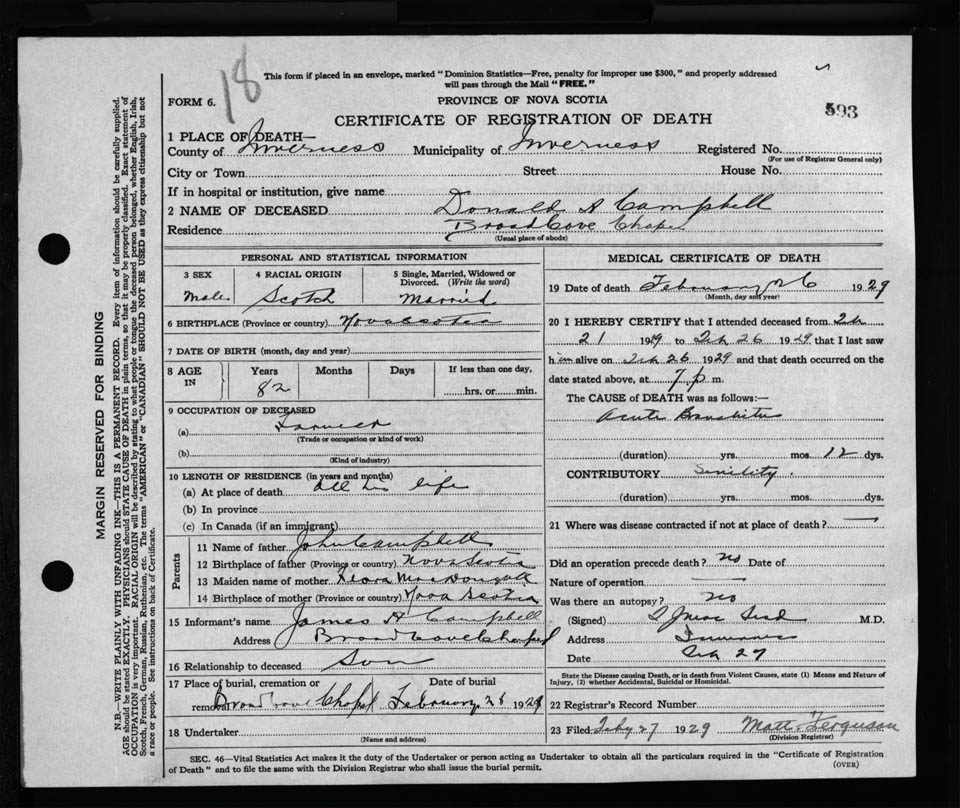 18
This form if placed in an envelope, marked "Dominion Statistics—Free, penalty for improper use $300," and properly addressed
will pass through the Mail "FREE."
FORM 6.
PROVINCE OF NOVA SCOTIA
593
CERTIFICATE OF REGISTRATION OF DEATH
1 PLACE OF DEATH—
County of Inverness Municipality of Inverness Registered No.
(For use of Registrar General only)
City or Town Street House No.
If in hospital or institution, give name
2 NAME OF DECEASED Donald A Campbell
Residence Broad Cove Chapel
(Usual place of abode)
PERSONAL AND STATISTICAL INFORMATION
3 SEX 4 RACIAL ORIGIN 5 Single, Married, Widowed or Divorced. (Write the word)
Male Scotch Married
6 BIRTHPLACE (Province or country) Nova Scotia
7 DATE OF BIRTH (month, day and year)
8 AGE IN Years Months Days If less than one day,
82 hrs. or min.
9 OCCUPATION OF DECEASED
(a) Farmer
(Trade or occupation or kind of work)
(b)
(Kind of industry)
10 LENGTH OF RESIDENCE (in years and months)
(a) At place of death all his life
(b) In province
(c) In Canada (if an immigrant)
Parents
11 Name of father John Campbell
12 Birthplace of father (Province or country) Nova Scotia
13 Maiden name of mother Flora MacDougall
14 Birthplace of mother (Province or country) Nova Scotia
15 Informant's name James A Campbell
Address Broad Cove Chapel
16 Relationship to deceased Son
17 Place of burial, cremation or removal Date of burial
Broad Cove Chapel February 28 1929
18 Undertaker
(Name and address)
MEDICAL CERTIFICATE OF DEATH
19 Date of death February 26 1929
(Month, day and year)
20 I HEREBY CERTIFY that I attended deceased from Feb
21 1929 to Feb 26 1929 that I last saw
him alive on Feb 26 1929 and that death occurred on the
date stated above, at 7 p m.
The CAUSE of DEATH was as follows:—
Acute Bronchitis
(duration) yrs. mos. 12 dys.
CONTRIBUTORY Senility.
(duration) yrs. mos. dys.
21 Where was disease contracted if not at place of death? —
Did an operation precede death? no Date of
Nature of operation —
Was there an autopsy? no
(Signed) M.D.
Address Inverness
Date Feb 27
State the Disease causing Death, or in death from Violent Causes, state (1) Means and Nature of
Injury, (2) whether Accidental, Suicidal or Homicidal.
22 Registrar's Record Number
23 Filed Feby 27 1929 Matt. Ferguson
(Division Registrar)
SEC. 46—Vital Statistics Act makes it the duty of the Undertaker or person acting as Undertaker to obtain all the particulars required in the "Certificate of Registration
of Death" and to file the same with the Division Registrar who shall issue the burial permit.
(OVER)
MARGIN RESERVED FOR BINDING
N.B.—WRITE PLAINLY WITH UNFADING INK—THIS IS A PERMANENT RECORD. Every item of information should be carefully supplied.
AGE should be stated EXACTLY. PHYSICIANS should STATE CAUSE OF DEATH in plain terms, so that it may be properly classified. Exact statement of
OCCUPATION is very important. RACIAL ORIGIN will be described by stating to what people or tongue the deceased person belonged, whether English, Irish,
Scotch, French, German, Russian, Ruthenian, etc. The terms "AMERICAN" or "CANADIAN" SHOULD NOT BE USED as they express citizenship but not
a race or people. See instructions on back of Certificate.